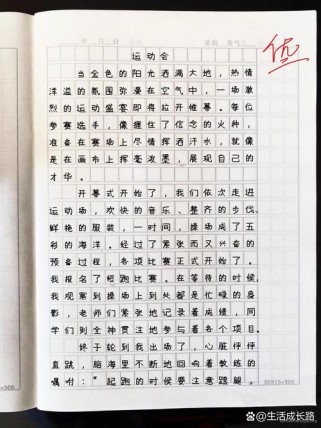 运动会
优
当金色的阳光洒满大地，热情
洋溢的氛围弥漫在空气中，一场激
烈的运动盛宴即将拉开帷幕。每位
参赛选手，像握住了信念的火种，
准备在赛场上尽情挥洒汗水，就像
是在画布上挥毫泼墨，展现自己的
才华。
开幕式开始了，我们依次走进
运动场，欢快的音乐、整齐的步伐、
鲜艳的服装，一时间，操场成了五
彩的海洋。经过了紧张而又兴奋的
预备过程，各项比赛正式开始了。
我报名了短跑比赛。在等待的时候，
我观察到操场上到处都是忙碌的身
影，老师们紧张地记录着成绩，同
学们则全神贯注地参与着各个项目。
终于轮到我出场了，心脏怦怦
直跳，脑海里不断地回响着教练的
嘱咐：“起跑的时候要注意蹬腿，
20X15=300
@生活成长路